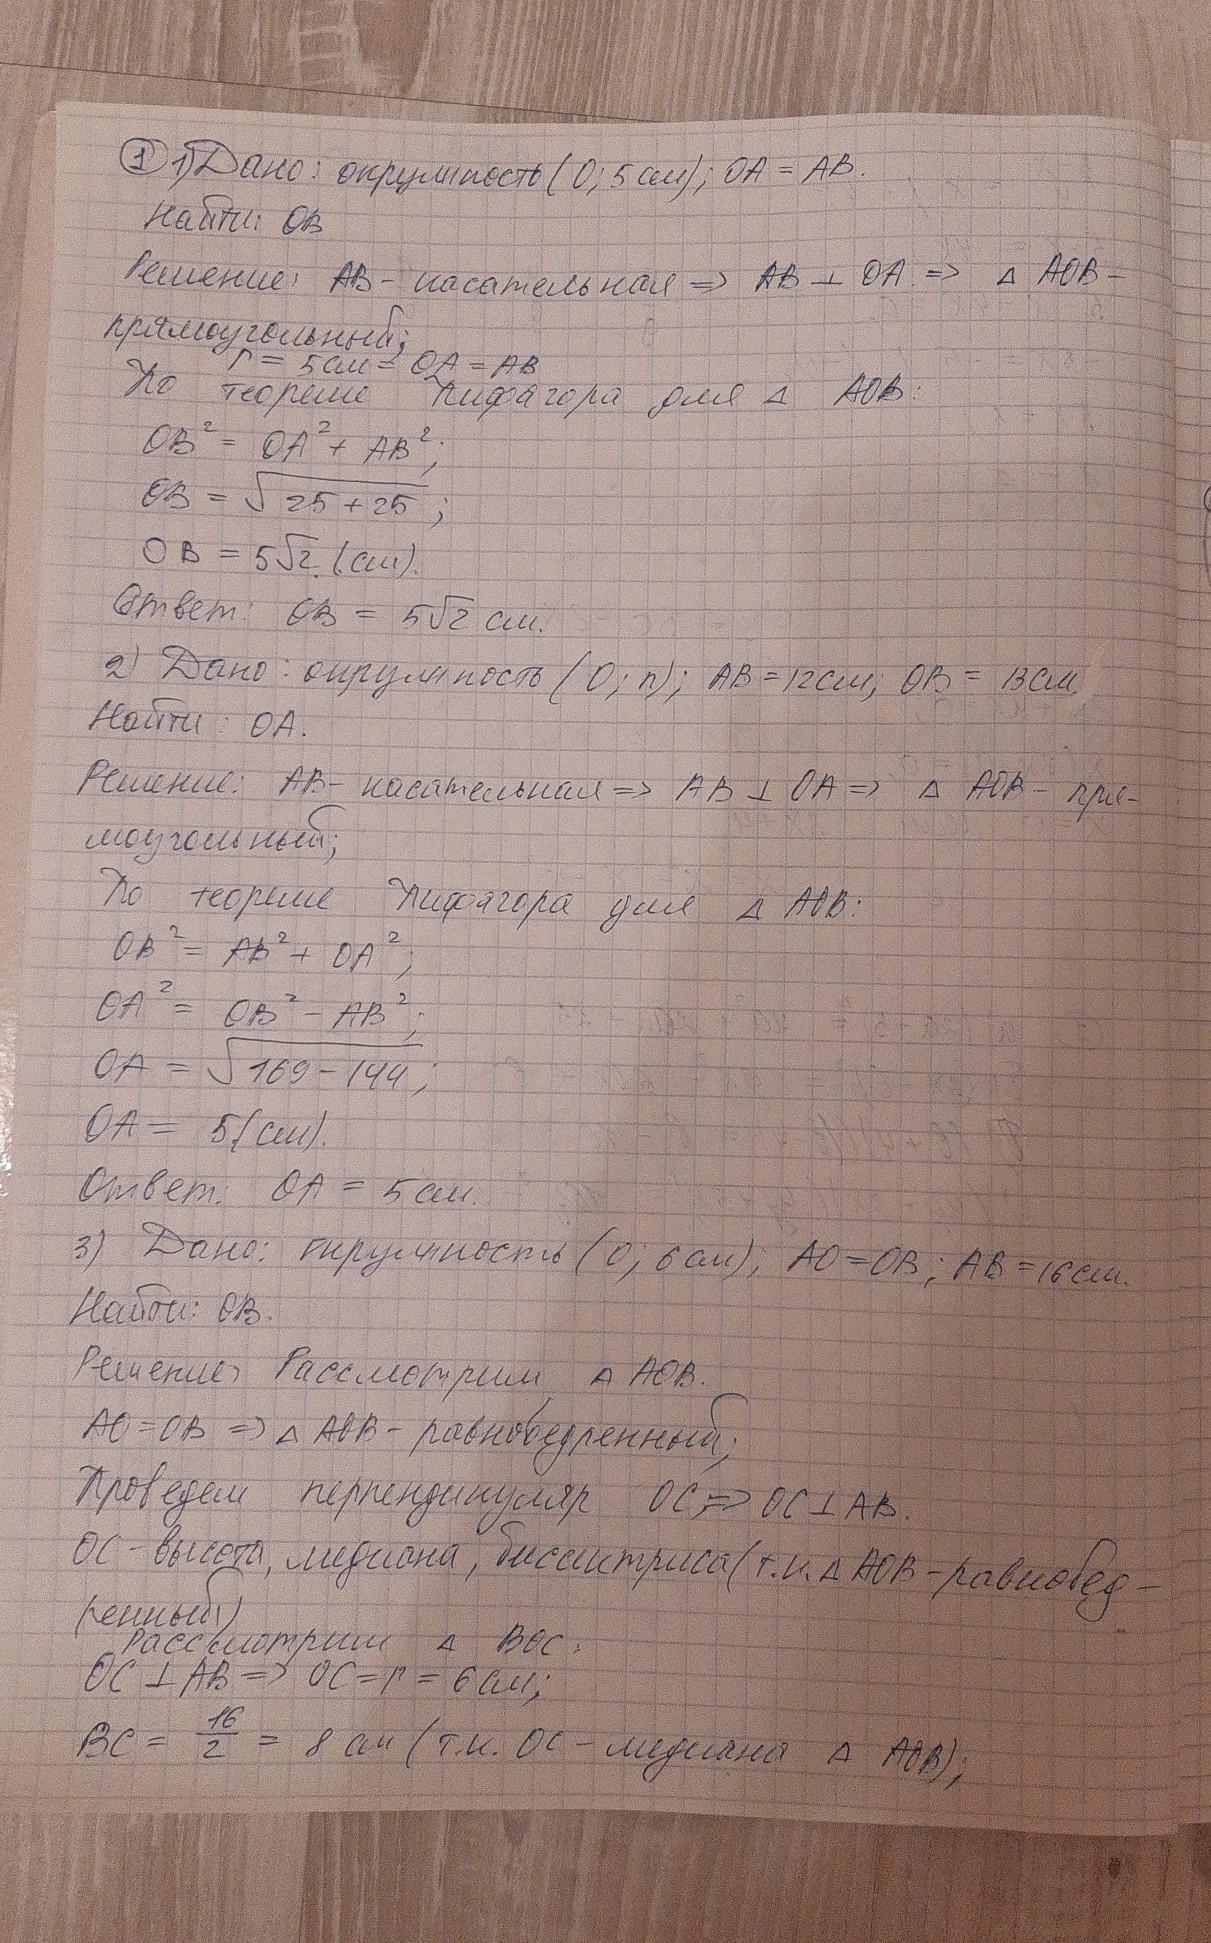 ① 1) Дано: окружность (O; 5 см); OA = AB.
Найти: OB
Решение: AB - касательная => AB ⊥ OA => △ AOB -
прямоугольный;
r = 5 см = OA = AB
По теореме Пифагора для △ AOB:
OB² = OA² + AB²;
OB = √25 + 25;
OB = 5√2 (см).
Ответ: OB = 5√2 см.
2) Дано: окружность (O; r); AB = 12 см; OB = 13 см
Найти: OA.
Решение: AB - касательная => AB ⊥ OA => △ AOB - пря-
моугольный;
По теореме Пифагора для △ AOB:
OB² = AB² + OA²;
OA² = OB² - AB²;
OA = √169 - 144;
OA = 5 (см).
Ответ: OA = 5 см.
3) Дано: окружность (O; 6 см); AO = OB; AB = 16 см.
Найти: OB.
Решение: Рассмотрим △ AOB.
AO = OB => △ AOB - равнобедренный;
Проведем перпендикуляр OC; => OC ⊥ AB.
OC - высота, медиана, биссектриса (т.к. △ AOB - равнобед-
ренный)
Рассмотрим △ BOC:
OC ⊥ AB => OC = r = 6 см;
BC = 16/2 = 8 см (т.к. OC - медиана △ AOB);